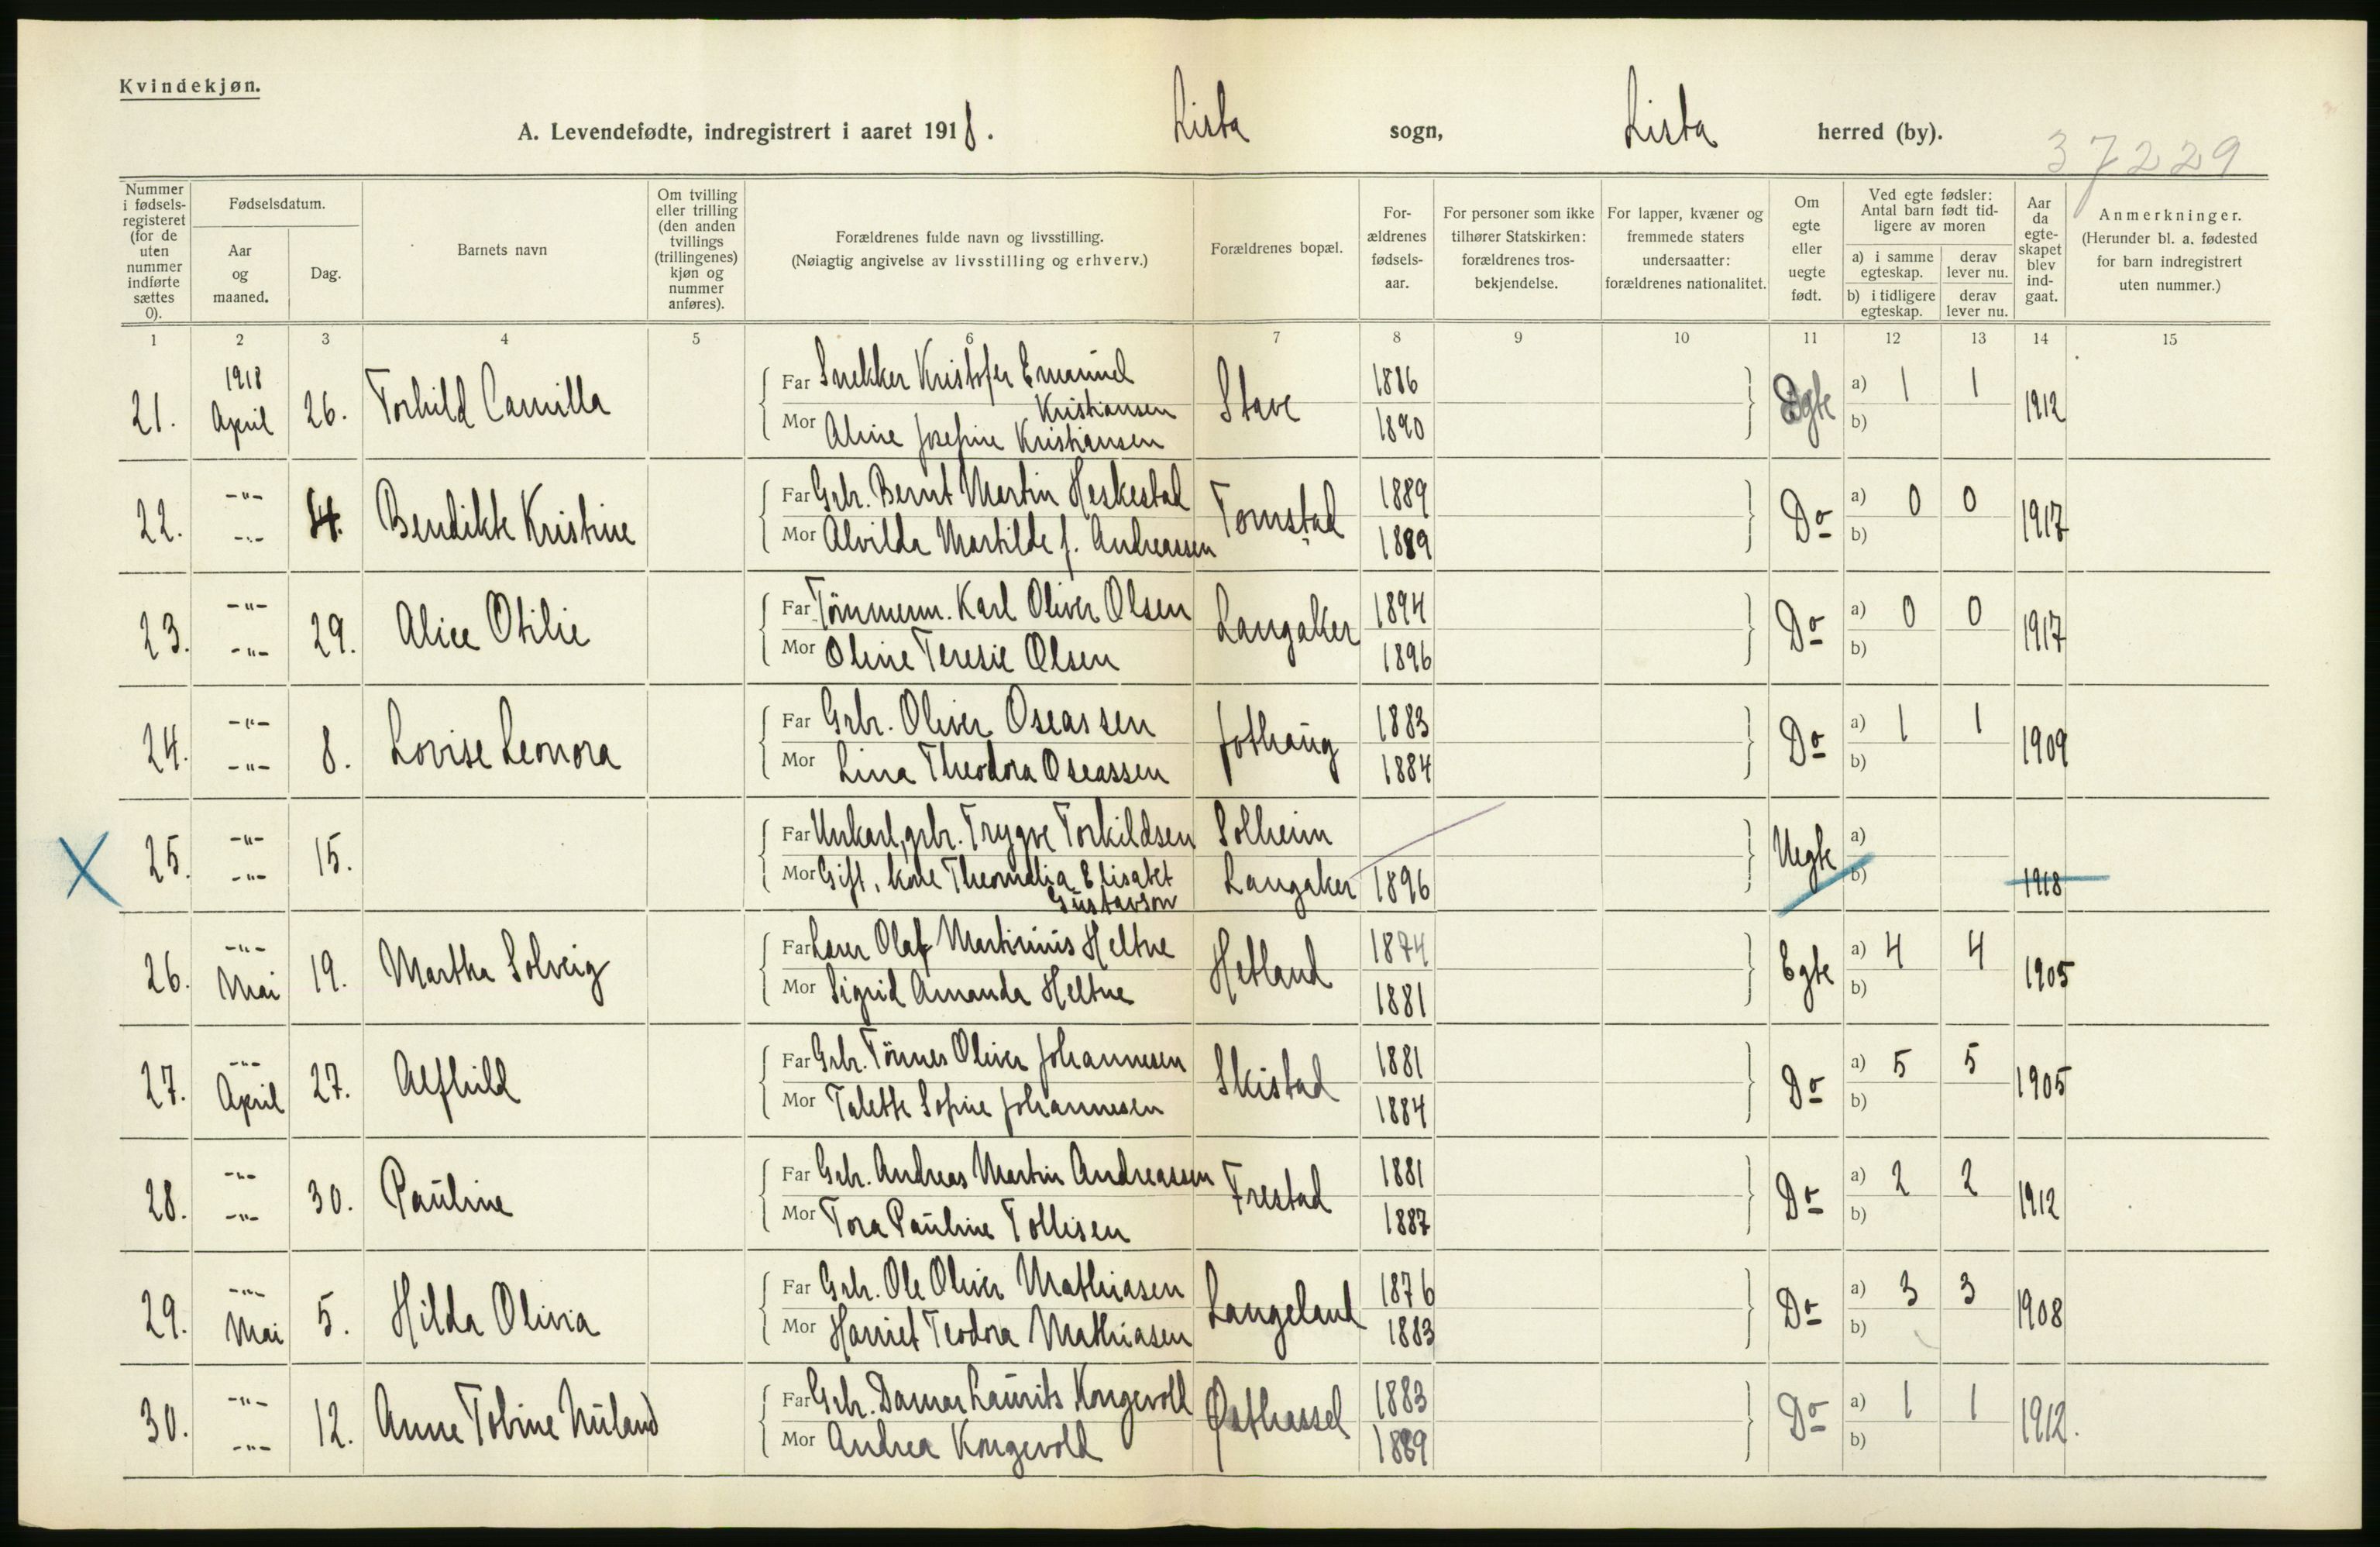 Kvindekjøn.
A. Levendefødte, indregistrert i aaret 1918. Lista sogn, Lista herred (by).
37229
Nummer i fødsels-registeret (for de uten nummer indførte sættes 0).
Fødselsdatum.
Aar og maaned.
Dag.
Barnets navn
Om tvilling eller trilling (den anden tvillings (trillingenes) kjøn og nummer anføres).
Forældrenes fulde navn og livsstilling.
(Nøiagtig angivelse av livsstilling og erhverv.)
Forældrenes bopæl.
For-ældrenes fødsels-aar.
For personer som ikke tilhører Statskirken: forældrenes tros-bekjendelse.
For lapper, kvæner og fremmede staters undersaatter: forældrenes nationalitet.
Om egte eller uegte født.
Ved egte fødsler: Antal barn født tid-ligere av moren
a) i samme egteskap.
derav lever nu.
b) i tidligere egteskap.
derav lever nu.
Aar da egte-skapet blev ind-gaat.
Anmerkninger.
(Herunder bl. a. fødested for barn indregistrert uten nummer.)
1 2 3 4 5 6 7 8 9 10 11 12 13 14 15
21. 1918 April 26. Torhild Camilla Far Snekker Kristofer Emanuel Kristiansen Stave 1886 Egte a) 1 1 1912
Mor Aline Josefine Kristiansen 1890 b)
22. -"- -"- 4. Bendikte Kristine Far Grb. Bernt Martin Heskestad Tomstad 1889 Do a) 0 0 1917
Mor Alvilda Martilde f. Andreassen 1889 b)
23. -"- -"- 29. Alice Otilie Far Tömmerm. Karl Oliver Olsen Langaker 1894 Do a) 0 0 1917
Mor Oline Teresie Olsen 1896 b)
24. -"- -"- 8. Lovise Leonora Far Grb. Oliver Oseassen Jothaug 1883 Do a) 1 1 1909
Mor Lina Theodora Oseassen 1884 b)
X 25. -"- -"- 15. Far Unkarl, grb. Trygve Torkildsen Solheim Uegte a)
Mor Gift, kone Theomalia Elisabet Gustavson Langaker 1896 b) 1918
26. -"- Mai 19. Martha Solveig Far Lærer Olaf Martinius Heltne Hetland 1874 Egte a) 4 4 1905
Mor Sigrid Amanda Heltne 1881 b)
27. -"- April 27. Alfhild Far Grb. Tönnes Oliver Johannesen Skistad 1881 Do a) 5 5 1905
Mor Talette Sofine Johannesen 1884 b)
28. -"- -"- 30. Pauline Far Grb. Andreas Martin Andreassen Frestad 1881 Do a) 2 2 1912
Mor Tora Pauline Tollisen 1887 b)
29. -"- Mai 5. Hilda Olivia Far Grb. Ole Oliver Mathiasen Langeland 1876 Do a) 3 3 1908
Mor Harriet Teodora Mathiasen 1883 b)
30. -"- -"- 12. Anne Tobine Nuland Far Grb. Damar Laurits Kongevold Østhassel 1883 Do a) 1 1 1912.
Mor Andrea Kongevold 1889 b)